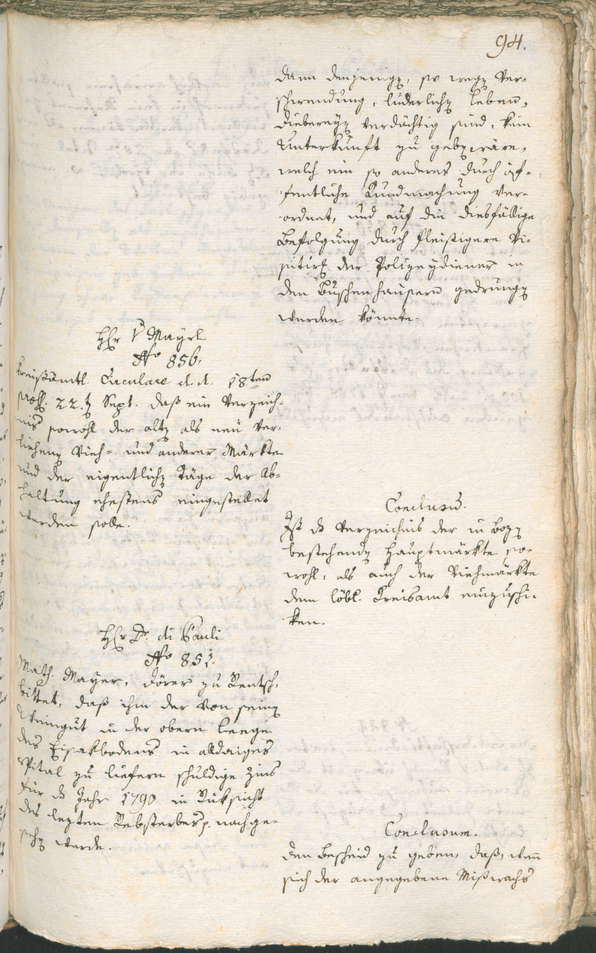 94.
dann denjenigen, so wegen Ver-
schwendung, liederlichen Leben,
Diebereyen verdächtig sind, kein
Unterkunft zu geben wäre,
welch ein so anderes durch öf-
fentliche Kundmachung ver-
ordnet, und auf die diesfällige
Befolgung durch fleissigere Vi-
sitirung der Polizeydiener in
den Buschenhäusern gedrungen
werden könnte.
Hr v Mayrl.
No 856.
Kreisamtl. Circulare d. d. 18ten
22. Sept. daß ein Verzeich-
nis sowohl der alten als neu ver-
liehenen Vieh- und anderer Märkte
und der eigentlichen Täge der Ab-
haltung ehestens eingestellet
werden solle.
Conclusum.
Ist das Verzeichnis der in Bozen
bestehenden Hauptmärkte so-
wohl, als auch der Viehmärkte
dem löbl. Kreisamt einzuschi-
ken.
Hr Dr. di Pauli.
No 851.
Math. Mayer, zu Rentsch,
bittet, daß ihm der von seinem
Weingut in der obern Leege
des Eisakbodens in alldasiges
Spital zu liefern schuldige Zins
für das Jahr 1790 in Rüksicht
des leztem nachge-
sehen werde.
Conclusum.
Den Bescheid zu geben, daß, wenn
sich der angegebene Mißwachs